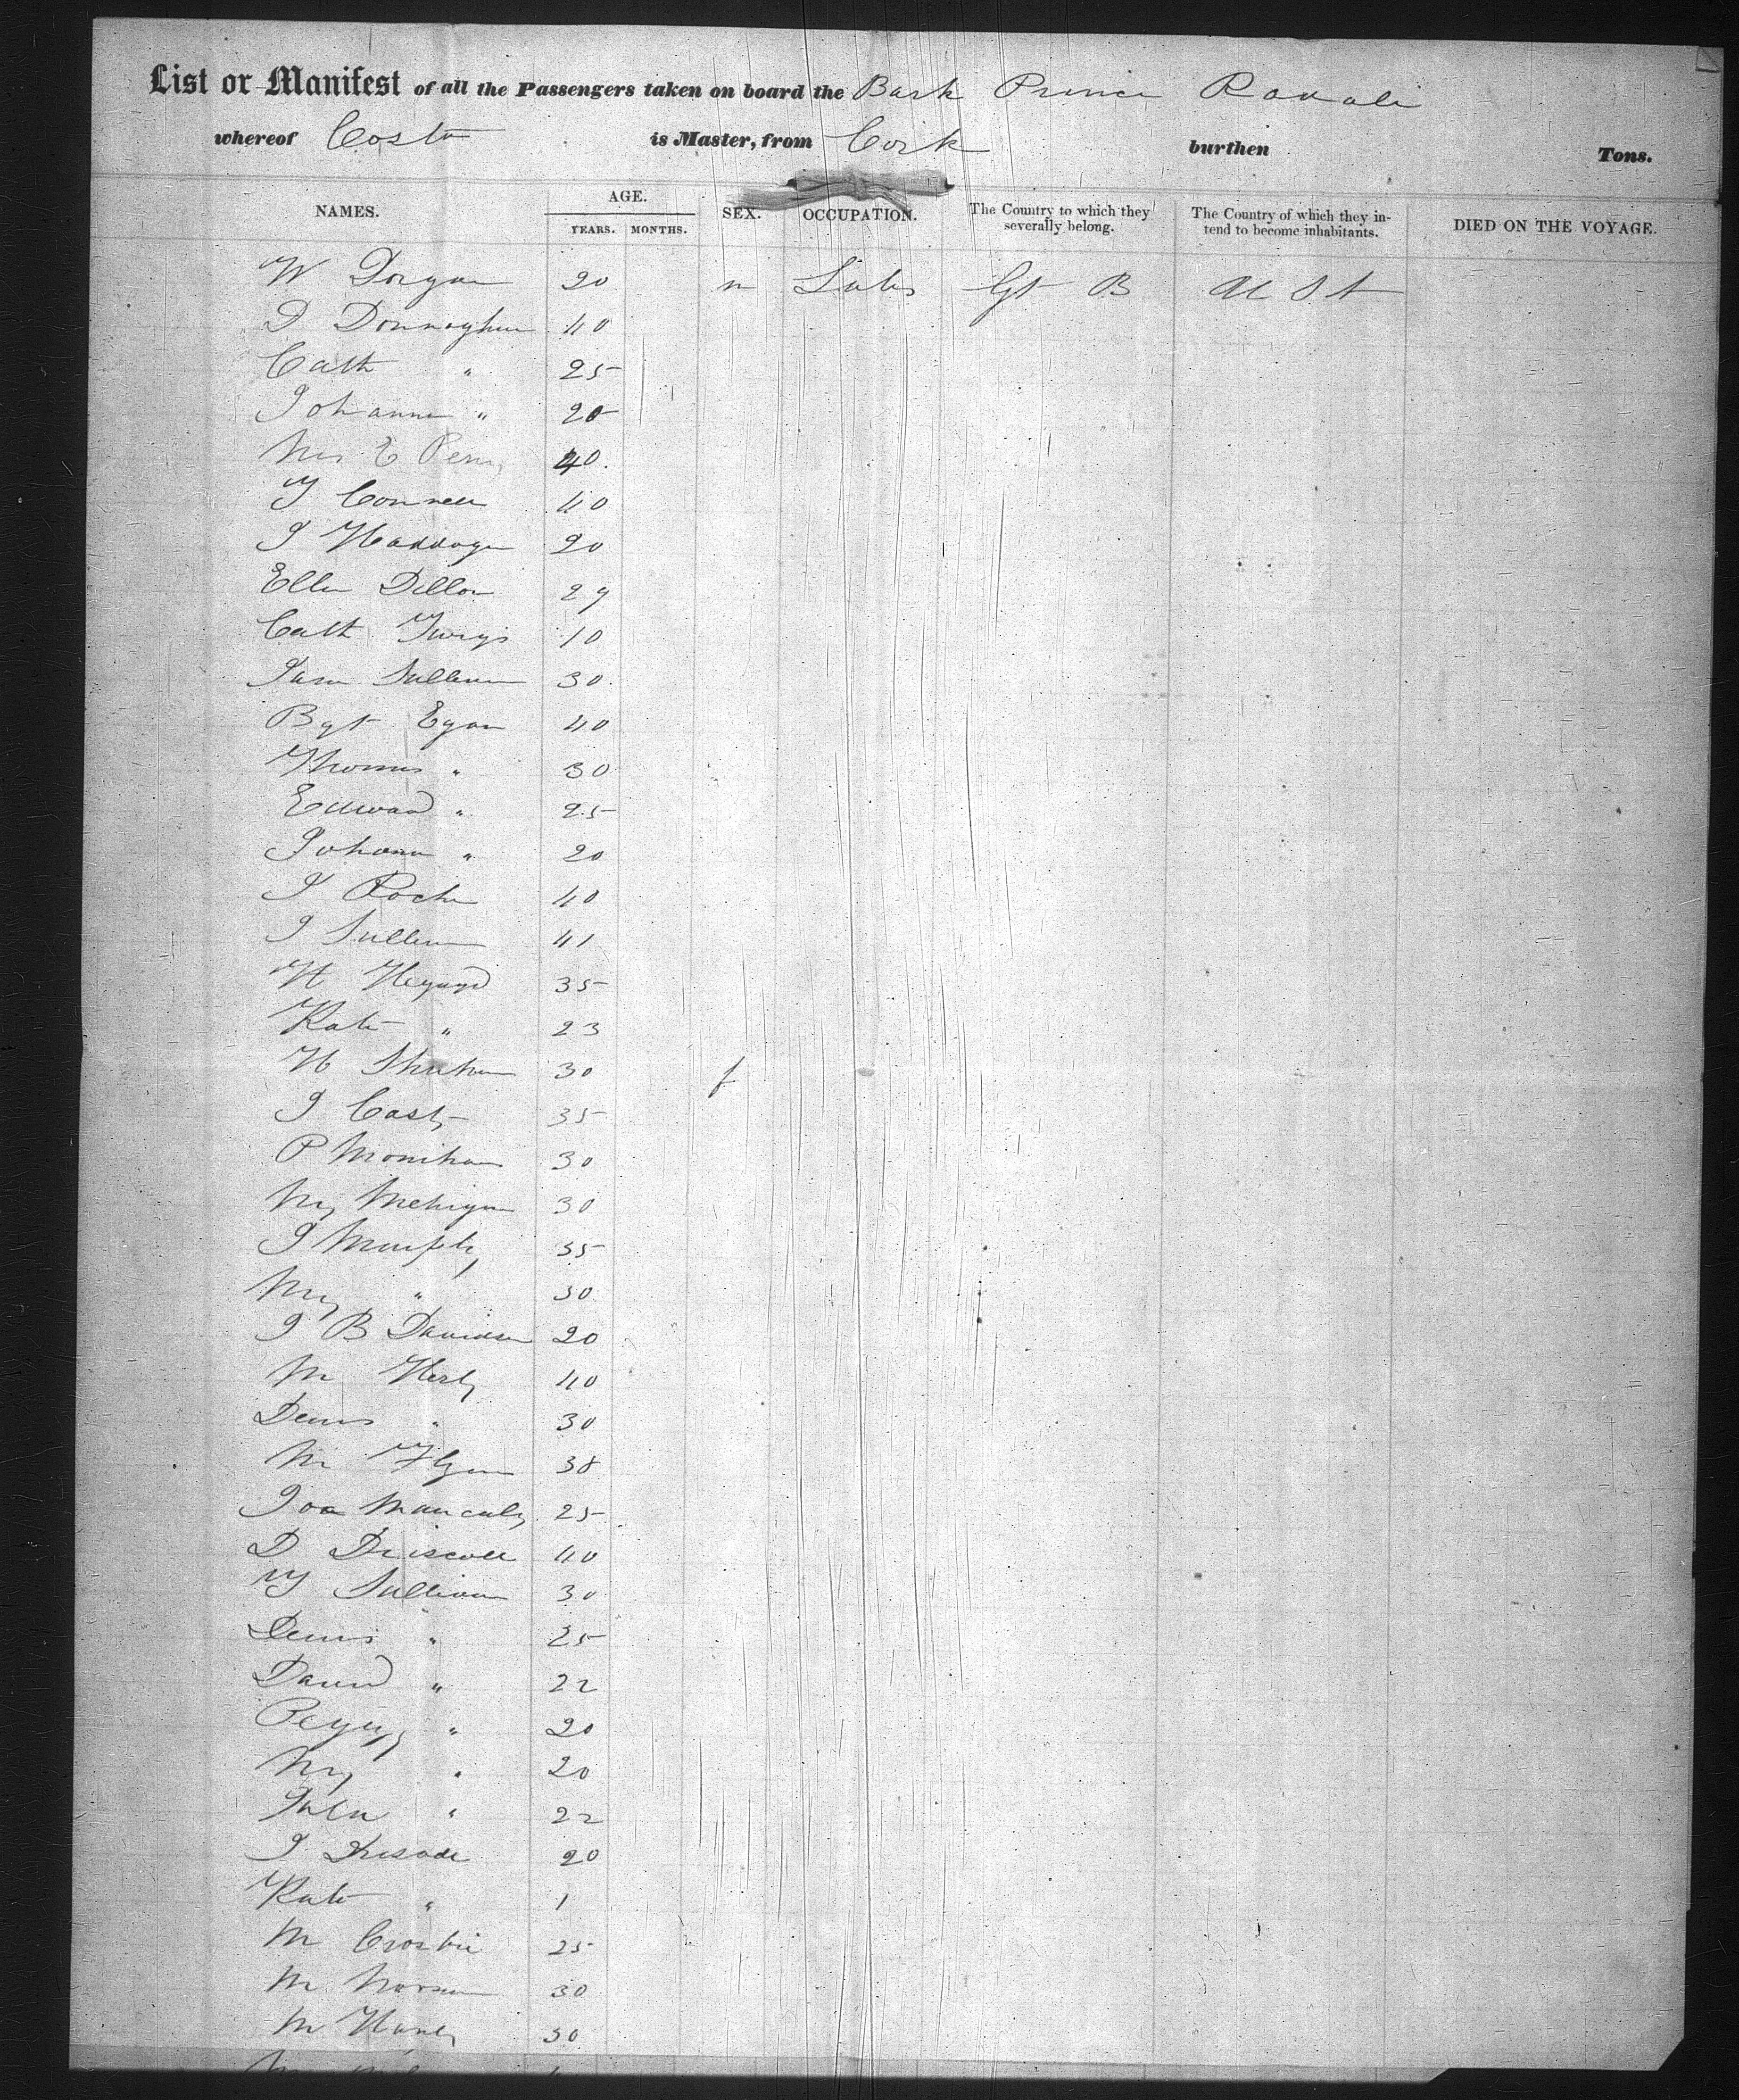 List or Manifest of all the Passengers taken on board the Bark Prince
whereof Costa is Master, from Cork burthen Tons.
NAMES. AGE. YEARS. MONTHS. SEX. OCCUPATION. The Country to which they severally belong. The Country of which they intend to become inhabitants. DIED ON THE VOYAGE.
W Dorgan 20 m Labr Gt B U S A
D Donnoghue 40
Cath " 25
Johanna " 20
Mrs E 40.
T Connell 40
J 20
Ellen Dillon 29
Cath Twigs 10
Sullivan 30
Bgt Egan 40
Thomas " 30
Edward " 25
Johana " 20
J Roche 40
J Sullivan 41
35
Kate " 23
30 f
J Casey 35
P Monihan 30
My Mehigan 30
J Murphy 35
My " 30
J B Davidson 20
M 40
Denis " 30
M Flynn 38
25
D Driscoll 40
T Sullivan 30
Denis " 25
David " 22
Peggy " 20
My " 20
" 22
J 20
Kate " 1
M Crosbie 25
M 30
M 30